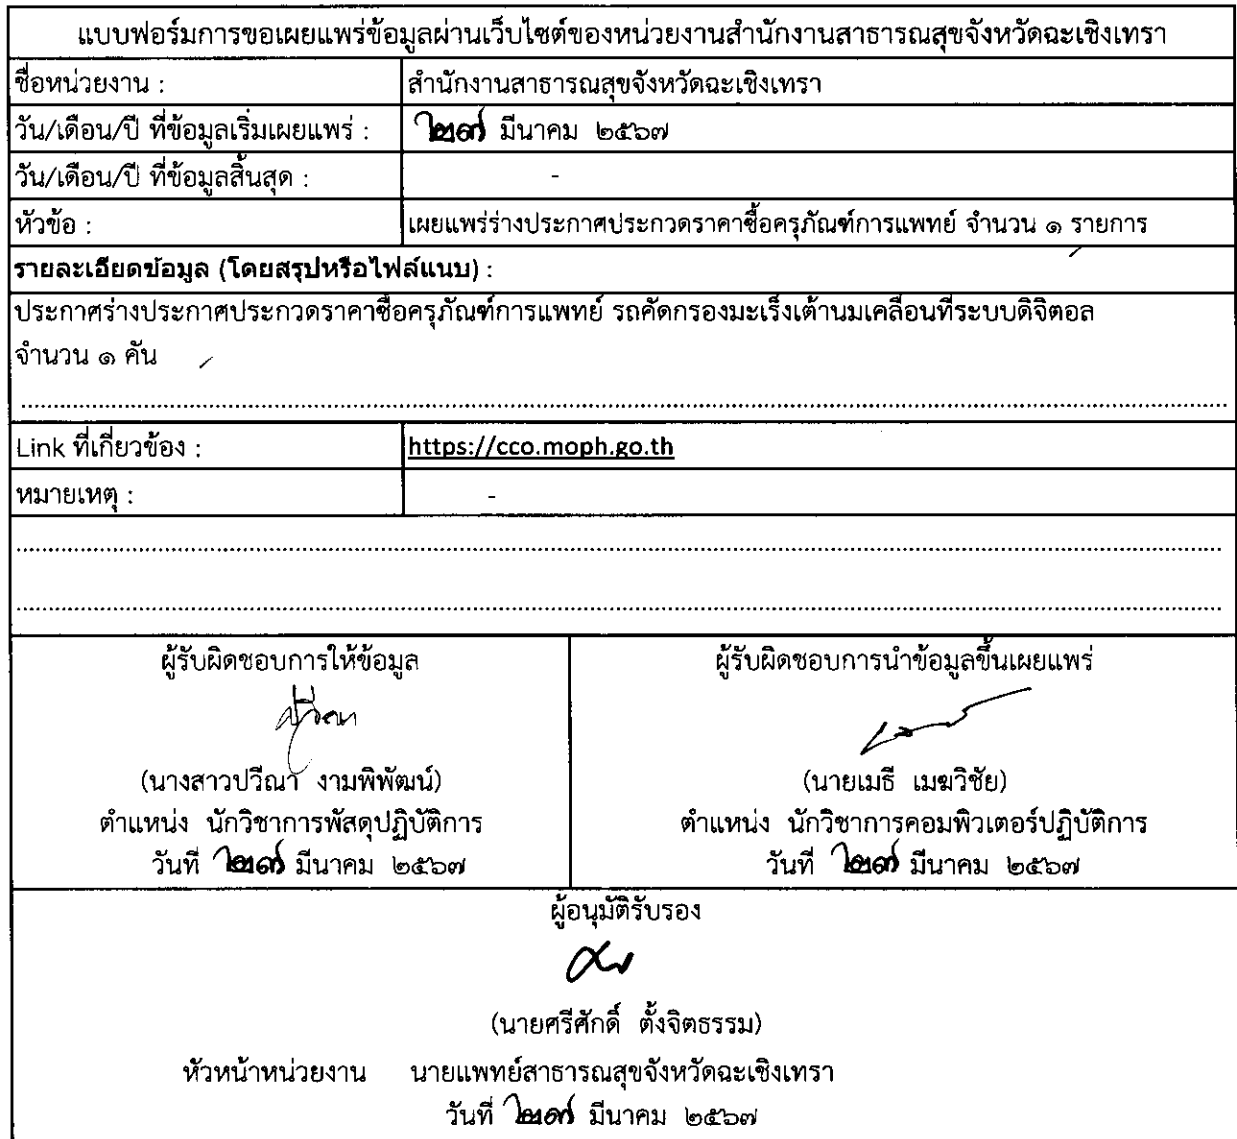 แบบฟอร์มการขอเผยแพร่ข้อมูลผ่านเว็บไซต์ของหน่วยงานสำนักงานสาธารณสุขจังหวัดฉะเชิงเทรา
ชื่อหน่วยงาน : สำนักงานสาธารณสุขจังหวัดฉะเชิงเทรา
วัน/เดือน/ปี ที่ข้อมูลเริ่มเผยแพร่ : ๒๗ มีนาคม ๒๕๖๗
วัน/เดือน/ปี ที่ข้อมูลสิ้นสุด : -
หัวข้อ : เผยแพร่ร่างประกาศประกวดราคาซื้อครุภัณฑ์การแพทย์ จำนวน ๑ รายการ
รายละเอียดข้อมูล (โดยสรุปหรือไฟล์แนบ) :
ประกาศร่างประกาศประกวดราคาซื้อครุภัณฑ์การแพทย์ รถคัดกรองมะเร็งเต้านมเคลื่อนที่ระบบดิจิตอล
จำนวน ๑ คัน
Link ที่เกี่ยวข้อง : https://cco.moph.go.th
หมายเหตุ : -
ผู้รับผิดชอบการให้ข้อมูล ผู้รับผิดชอบการนำข้อมูลขึ้นเผยแพร่
ปวีณา
(นางสาวปวีณา งามพิพัฒน์) (นายเมธี เมฆวิชัย)
ตำแหน่ง นักวิชาการพัสดุปฏิบัติการ ตำแหน่ง นักวิชาการคอมพิวเตอร์ปฏิบัติการ
วันที่ ๒๗ มีนาคม ๒๕๖๗ วันที่ ๒๗ มีนาคม ๒๕๖๗
ผู้อนุมัติรับรอง
(นายศรีศักดิ์ ตั้งจิตธรรม)
หัวหน้าหน่วยงาน นายแพทย์สาธารณสุขจังหวัดฉะเชิงเทรา
วันที่ ๒๗ มีนาคม ๒๕๖๗